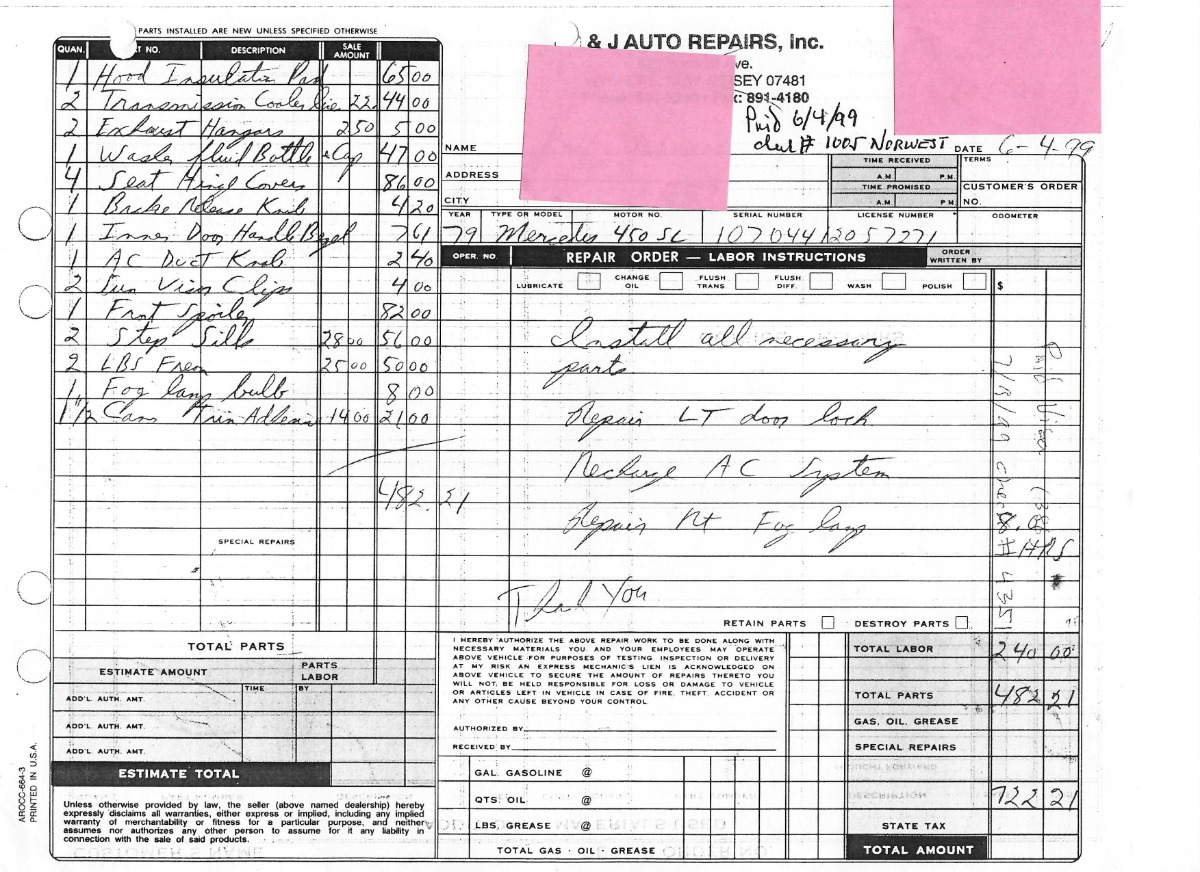 PARTS INSTALLED ARE NEW UNLESS SPECIFIED OTHERWISE
& J AUTO REPAIRS, Inc.
ve.
SEY 07481
x: 891-4180
Paid 6/4/99
check # 1005 NORWEST
QUAN. T NO. DESCRIPTION SALE AMOUNT
1 Hood Insulation Pad 65 00
2 Transmission Cooler line 22. 44 00
2 Exhaust Hangars 2 50 5 00
1 Washer fluid Bottle + Cap 47 00
4 Seat Hinge Covers 86 00
1 Brake Release Knob 4 20
1 Inner Door Handle Bezel 7 61
1 AC Duct Knob 2 40
2 Sun Visor Clips 4 00
1 Front Spoiler 82 00
2 Step Sills 28 00 56 00
2 LBS Freon 25 00 50 00
1 Fog lamp bulb 8 00
1 1/2 Cans Trim Adhesive 14 00 21 00
482.21
SPECIAL REPAIRS
TOTAL PARTS
ESTIMATE AMOUNT PARTS LABOR
TIME BY
ADD'L. AUTH. AMT.
ADD'L. AUTH. AMT.
ADD'L. AUTH. AMT.
ESTIMATE TOTAL
Unless otherwise provided by law, the seller (above named dealership) hereby
expressly disclaims all warranties, either express or implied, including any implied
warranty of merchantability or fitness for a particular purpose, and neither
assumes nor authorizes any other person to assume for it any liability in
connection with the sale of said products.
AROCC-664-3
PRINTED IN U.S.A.
NAME DATE 6-4-99
ADDRESS
CITY
TIME RECEIVED
A.M. P.M.
TIME PROMISED
A.M. P.M.
TERMS
CUSTOMER'S ORDER
NO.
YEAR TYPE OR MODEL MOTOR NO. SERIAL NUMBER LICENSE NUMBER ODOMETER
79 Mercedes 450 SL 10704412057271
OPER. NO. REPAIR ORDER — LABOR INSTRUCTIONS ORDER WRITTEN BY
LUBRICATE CHANGE OIL FLUSH TRANS. FLUSH DIFF. WASH POLISH $
Install all necessary
parts.
Repair LT door lock
Recharge AC System
Repair Rt Fog lamp
Thank You
Paid Visa
7/8/99 check # 4351
RETAIN PARTS DESTROY PARTS
I HEREBY AUTHORIZE THE ABOVE REPAIR WORK TO BE DONE ALONG WITH
NECESSARY MATERIALS YOU AND YOUR EMPLOYEES MAY OPERATE
ABOVE VEHICLE FOR PURPOSES OF TESTING. INSPECTION OR DELIVERY
AT MY RISK AN EXPRESS MECHANIC'S LIEN IS ACKNOWLEDGED ON
ABOVE VEHICLE TO SECURE THE AMOUNT OF REPAIRS THERETO YOU
WILL NOT, BE HELD RESPONSIBLE FOR LOSS OR DAMAGE TO VEHICLE
OR ARTICLES LEFT IN VEHICLE IN CASE OF FIRE. THEFT. ACCIDENT OR
ANY OTHER CAUSE BEYOND YOUR CONTROL.
AUTHORIZED BY
RECEIVED BY
GAL. GASOLINE @
QTS. OIL @
LBS. GREASE @
TOTAL GAS - OIL - GREASE
TOTAL LABOR 240 00
TOTAL PARTS 482 21
GAS, OIL, GREASE
SPECIAL REPAIRS
722 21
STATE TAX
TOTAL AMOUNT